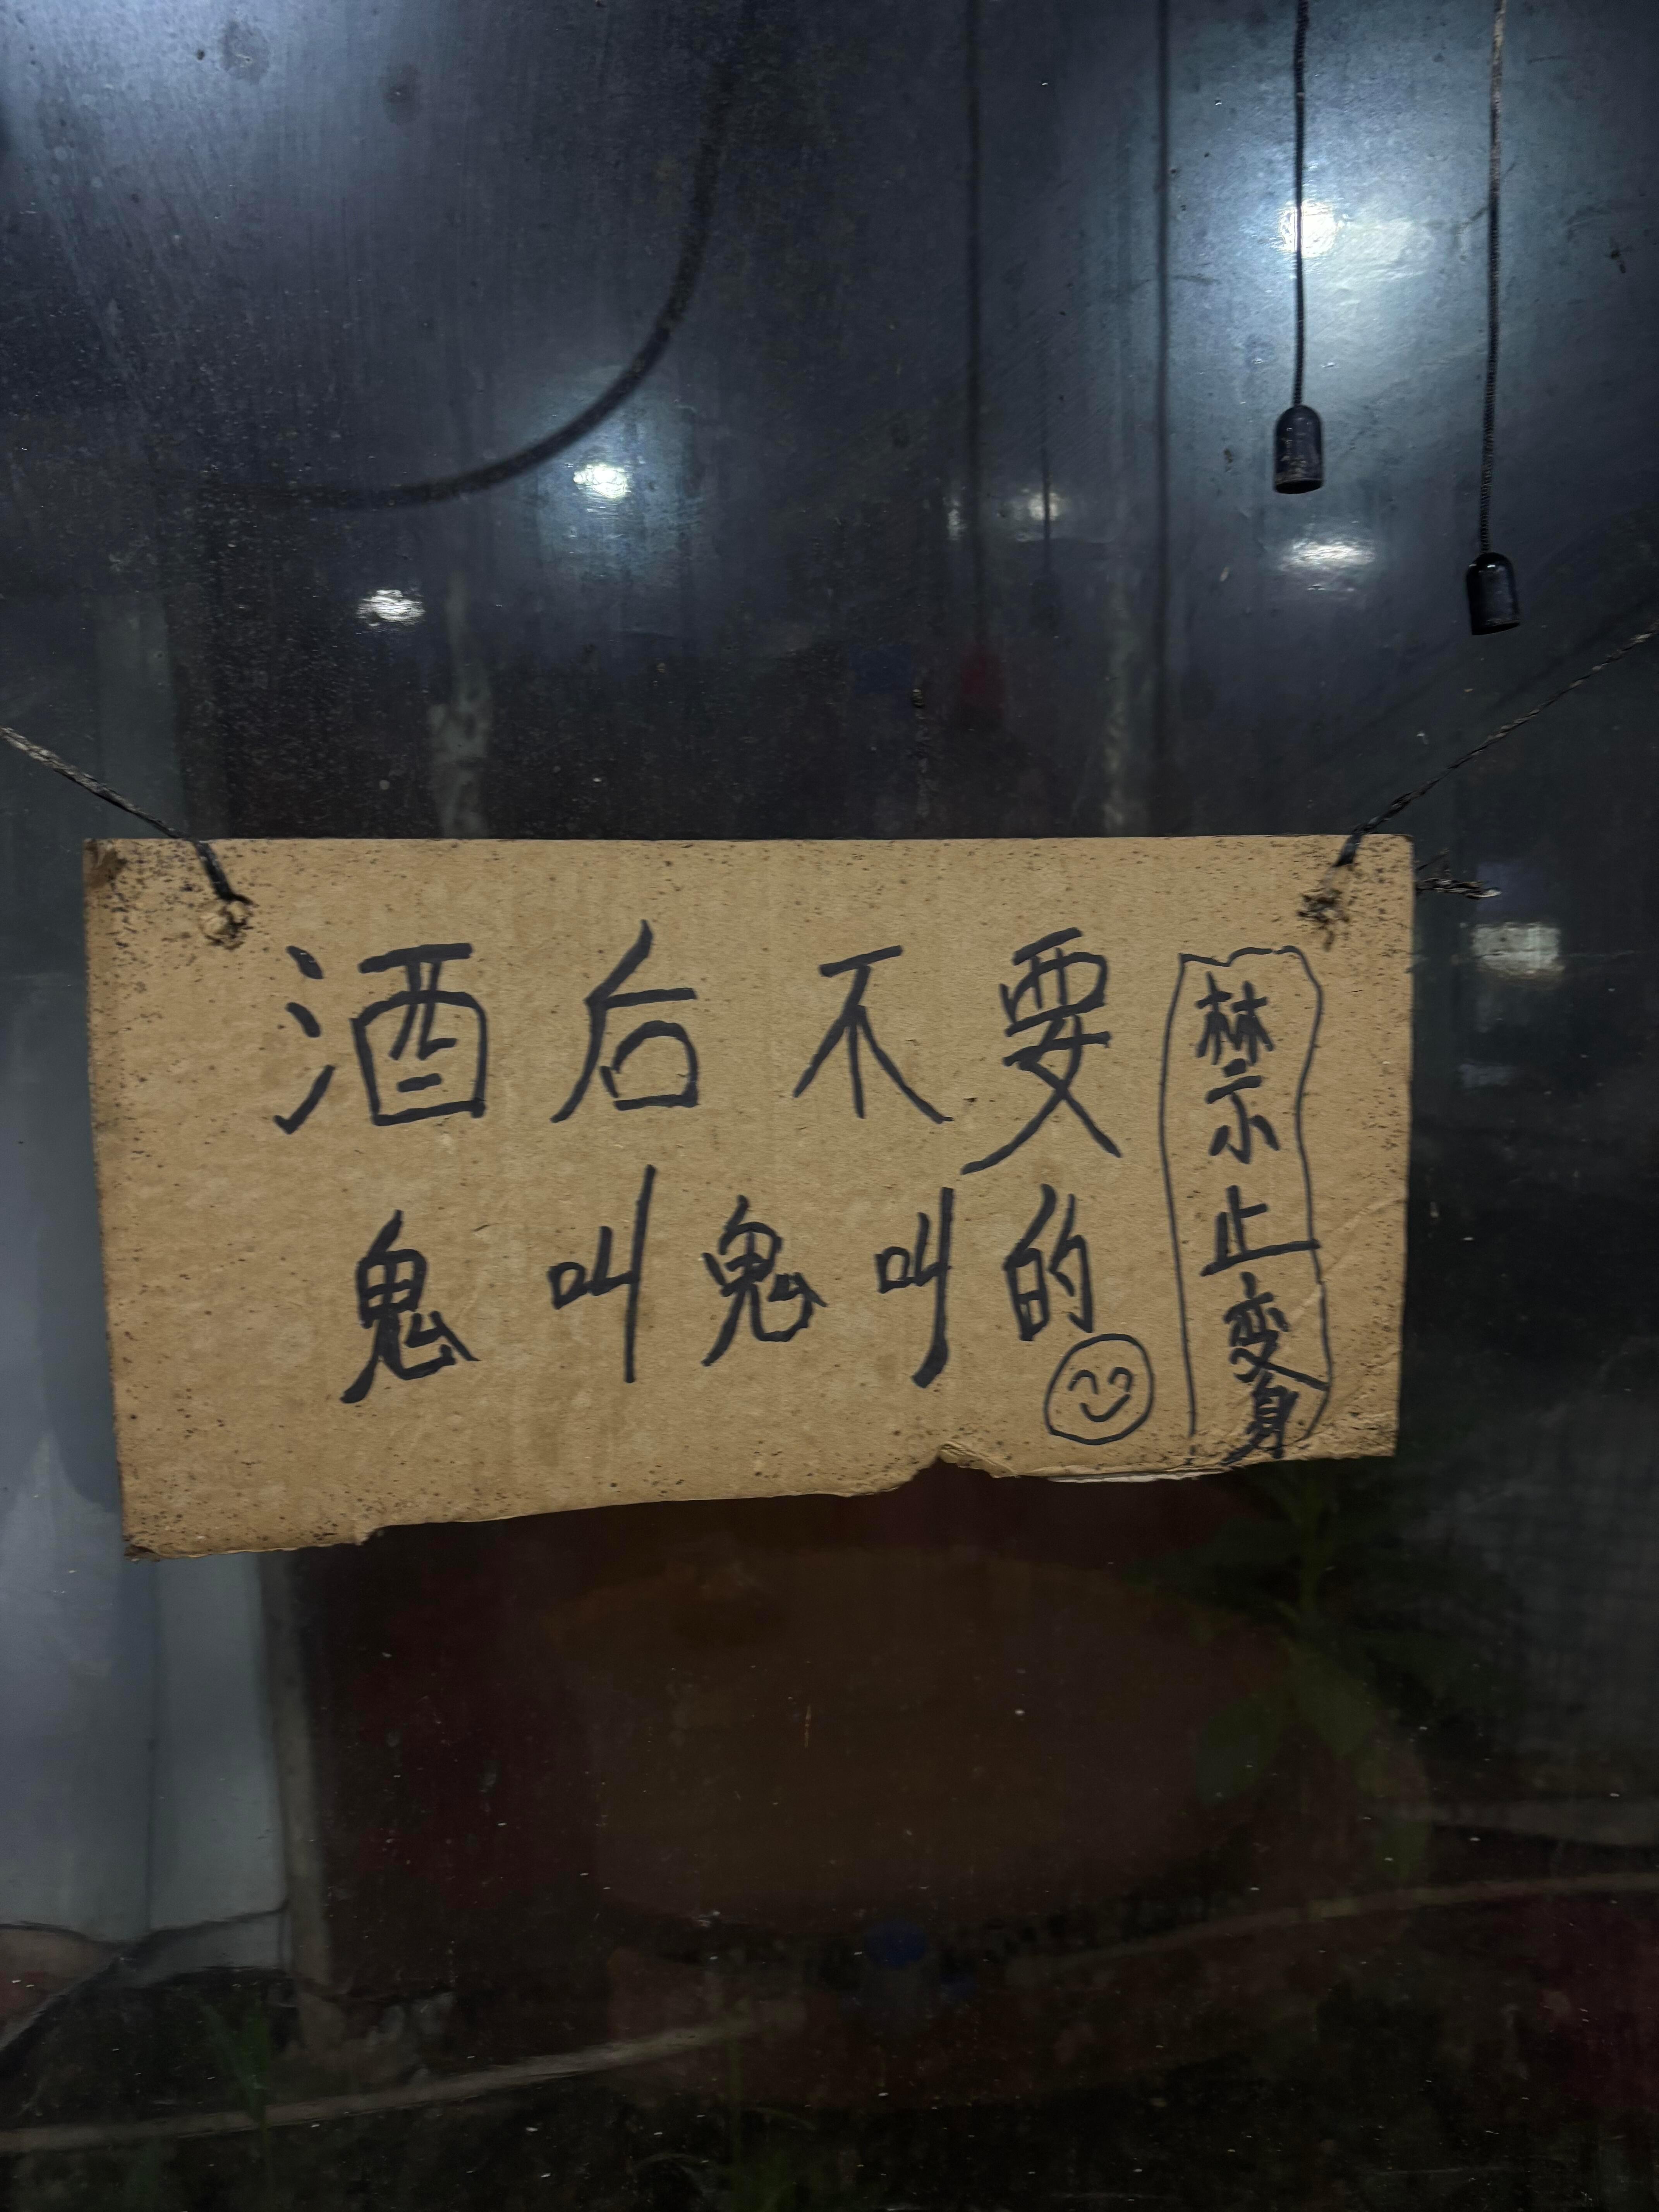 酒后不要
鬼叫鬼叫的
禁止变身